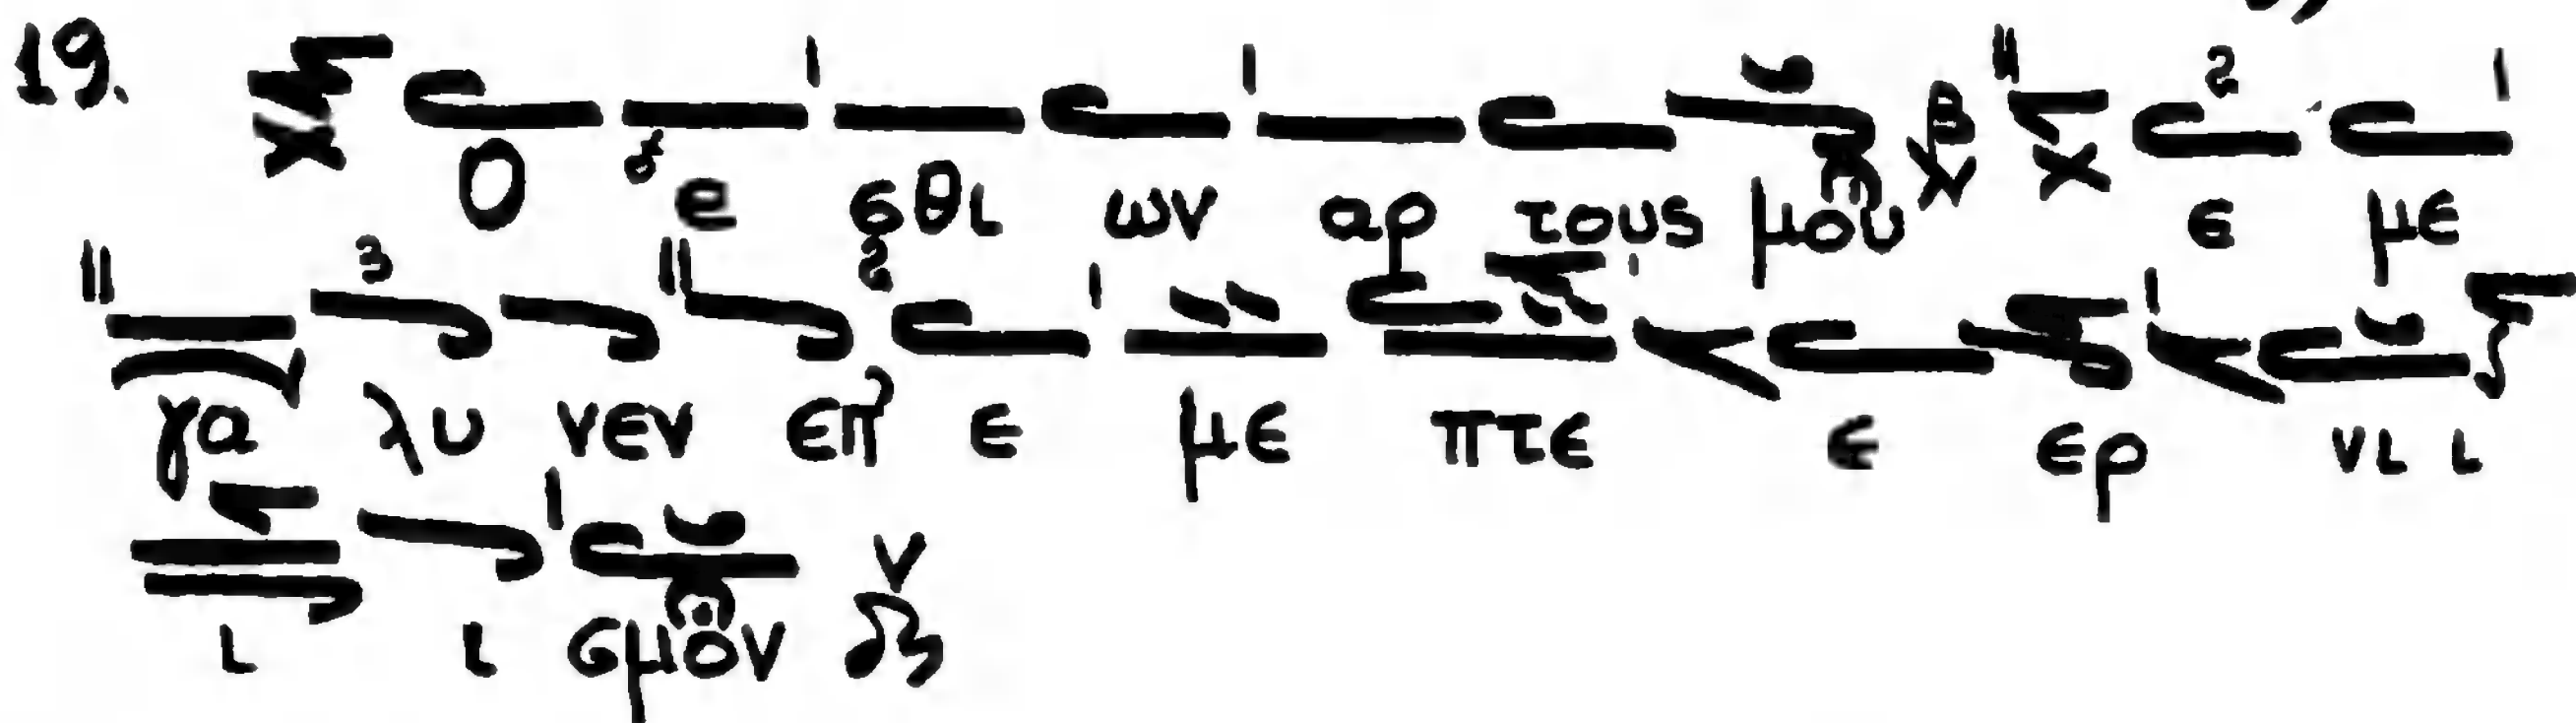 19. Ο ε σθι ων αρ τους μου β ε με
γα λυ νεν επ' ε με πτε ε ερ νι ι
ι ι σμον